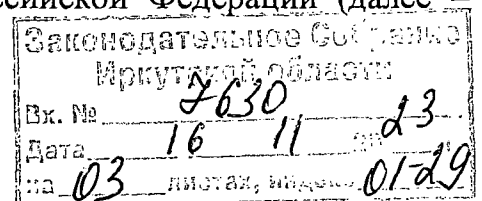 сийской Федерации (далее –
Законодательное Собрание
Иркутской области
Вх. № 7630
Дата 16 11 20 23 г.
на 03 листах, индекс 01-29